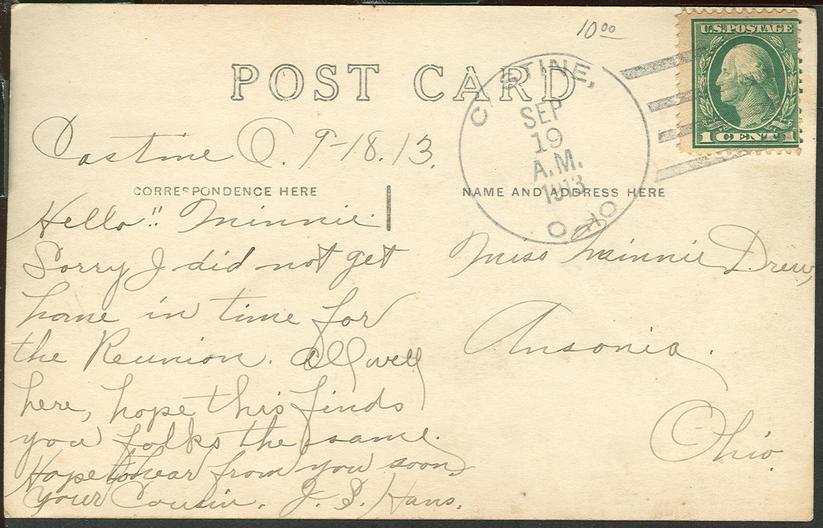 10 00
U.S. POSTAGE
1 CENT 1
POST CARD
CASTINE,
SEP
19
A.M.
1913
OHIO
Castine O. 9-18.13.
CORRESPONDENCE HERE
NAME AND ADDRESS HERE
Hello!! Minnie.
Sorry I did not get
home in time for
the Reunion. All well
here, hope this finds
you folks the same.
Hope to hear from you soon,
your Cousin. J. S. Hans.
Miss Minnie Drew,
Ansonia.
Ohio.